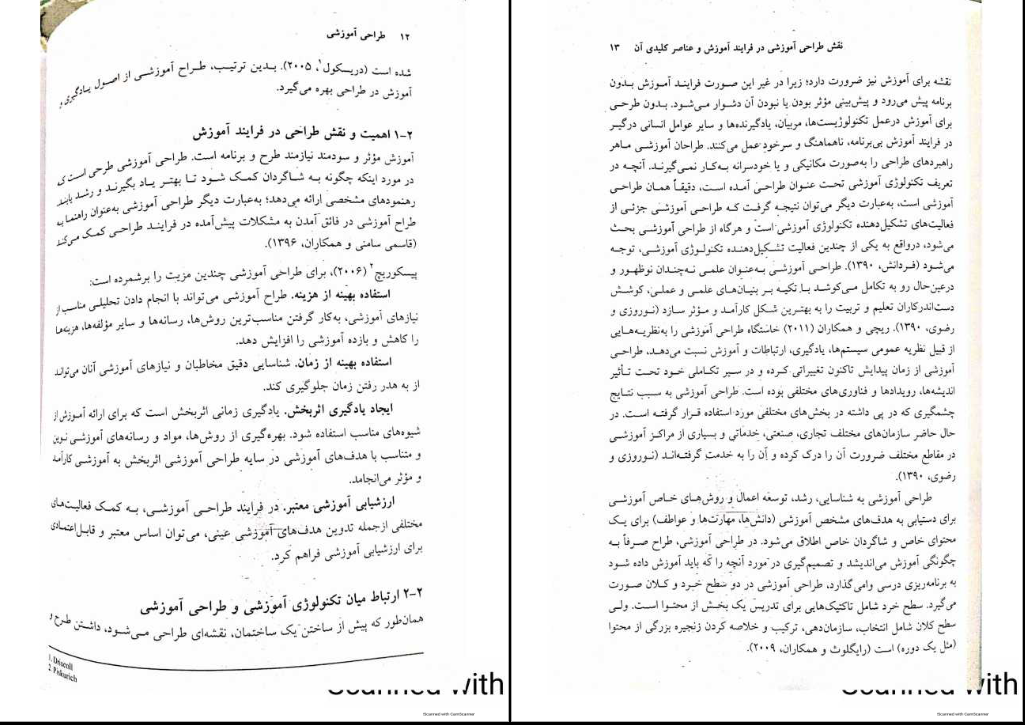 ۱۲ طراحی آموزشی
شده است (دریسکول۱، ۲۰۰۵). بدین ترتیب، طراح آموزشی از اصول یادگیری و
آموزش در طراحی بهره می‌گیرد.
۱-۲ اهمیت و نقش طراحی در فرایند آموزش
آموزش مؤثر و سودمند نیازمند طرح و برنامه است. طراحی آموزشی طرحی است که
در مورد اینکه چگونه به شاگردان کمک شود تا بهتر یاد بگیرند و رشد یابند
رهنمودهای مشخصی ارائه می‌دهد؛ به‌عبارت دیگر طراحی آموزشی به‌عنوان راهنما به
طراح آموزشی در فائق آمدن به مشکلات پیش‌آمده در فرایند طراحی کمک می‌کند
(قاسمی سامنی و همکاران، ۱۳۹۶).
پیسکوریچ۲ (۲۰۰۶)، برای طراحی آموزشی چندین مزیت را برشمرده است:
استفاده بهینه از هزینه. طراح آموزشی می‌تواند با انجام دادن تحلیلی مناسب از
نیازهای آموزشی، به‌کار گرفتن مناسب‌ترین روش‌ها، رسانه‌ها و سایر مؤلفه‌ها، هزینه‌ها
را کاهش و بازده آموزشی را افزایش دهد.
استفاده بهینه از زمان. شناسایی دقیق مخاطبان و نیازهای آموزشی آنان می‌تواند
از به هدر رفتن زمان جلوگیری کند.
ایجاد یادگیری اثربخش. یادگیری زمانی اثربخش است که برای ارائه آموزش از
شیوه‌های مناسب استفاده شود. بهره‌گیری از روش‌ها، مواد و رسانه‌های آموزشی نوین
و متناسب با هدف‌های آموزشی در سایه طراحی آموزشی اثربخش به آموزشی کارآمد
و مؤثر می‌انجامد.
ارزشیابی آموزشی معتبر. در فرایند طراحی آموزشی، به کمک فعالیت‌های
مختلفی ازجمله تدوین هدف‌های آموزشی عینی، می‌توان اساس معتبر و قابل‌اعتمادی
برای ارزشیابی آموزشی فراهم کرد.
۲-۲ ارتباط میان تکنولوژی آموزشی و طراحی آموزشی
همان‌طور که پیش از ساختن یک ساختمان، نقشه‌ای طراحی می‌شود، داشتن طرح و
1. Driscoll
2. Piskurich
Scanned with
Scanned with CamScanner
نقش طراحی آموزشی در فرایند آموزش و عناصر کلیدی آن ۱۳
نقشه برای آموزش نیز ضرورت دارد؛ زیرا در غیر این صورت فرایند آموزش بدون
برنامه پیش می‌رود و پیش‌بینی مؤثر بودن یا نبودن آن دشوار می‌شود. بدون طرحی
برای آموزش درعمل تکنولوژیست‌ها، مربیان، یادگیرنده‌ها و سایر عوامل انسانی درگیر
در فرایند آموزش بی‌برنامه، ناهماهنگ و سرخود عمل می‌کنند. طراحان آموزشی ماهر
راهبردهای طراحی را به‌صورت مکانیکی و یا خودسرانه به‌کار نمی‌گیرند. آنچه در
تعریف تکنولوژی آموزشی تحت عنوان طراحی آمده است، دقیقاً همان طراحی
آموزشی است، به‌عبارت دیگر می‌توان نتیجه گرفت که طراحی آموزشی جزئی از
فعالیت‌های تشکیل‌دهنده تکنولوژی آموزشی است و هرگاه از طراحی آموزشی بحث
می‌شود، درواقع به یکی از چندین فعالیت تشکیل‌دهنده تکنولوژی آموزشی، توجه
می‌شود (فردانش، ۱۳۹۰). طراحی آموزشی به‌عنوان علمی نه‌چندان نوظهور و
درعین‌حال رو به تکامل می‌کوشد با تکیه بر بنیان‌های علمی و عملی، کوشش
دست‌اندرکاران تعلیم و تربیت را به بهترین شکل کارآمد و مؤثر سازد (نوروزی و
رضوی، ۱۳۹۰). ریچی و همکاران (۲۰۱۱) خاستگاه طراحی آموزشی را به‌نظریه‌هایی
از قبیل نظریه عمومی سیستم‌ها، یادگیری، ارتباطات و آموزش نسبت می‌دهد، طراحی
آموزشی از زمان پیدایش تاکنون تغییراتی کرده و در سیر تکاملی خود تحت تأثیر
اندیشه‌ها، رویدادها و فناوری‌های مختلفی بوده است. طراحی آموزشی به سبب نتایج
چشمگیری که در پی داشته در بخش‌های مختلفی مورد استفاده قرار گرفته است. در
حال حاضر سازمان‌های مختلف تجاری، صنعتی، خدماتی و بسیاری از مراکز آموزشی
در مقاطع مختلف ضرورت آن را درک کرده و آن را به خدمت گرفته‌اند (نوروزی و
رضوی، ۱۳۹۰).
طراحی آموزشی به شناسایی، رشد، توسعه اعمال و روش‌های خاص آموزشی
برای دستیابی به هدف‌های مشخص آموزشی (دانش‌ها، مهارت‌ها و عواطف) برای یک
محتوای خاص و شاگردان خاص اطلاق می‌شود. در طراحی آموزشی، طراح صرفاً به
چگونگی آموزش می‌اندیشد و تصمیم‌گیری در مورد آنچه را که باید آموزش داده شود
به برنامه‌ریزی درسی وامی‌گذارد، طراحی آموزشی در دو سطح خرد و کلان صورت
می‌گیرد. سطح خرد شامل تاکتیک‌هایی برای تدریس یک بخش از محتوا است. ولی
سطح کلان شامل انتخاب، سازمان‌دهی، ترکیب و خلاصه کردن زنجیره بزرگی از محتوا
(مثل یک دوره) است (رایگلوث و همکاران، ۲۰۰۹).
Scanned with
Scanned with CamScanner